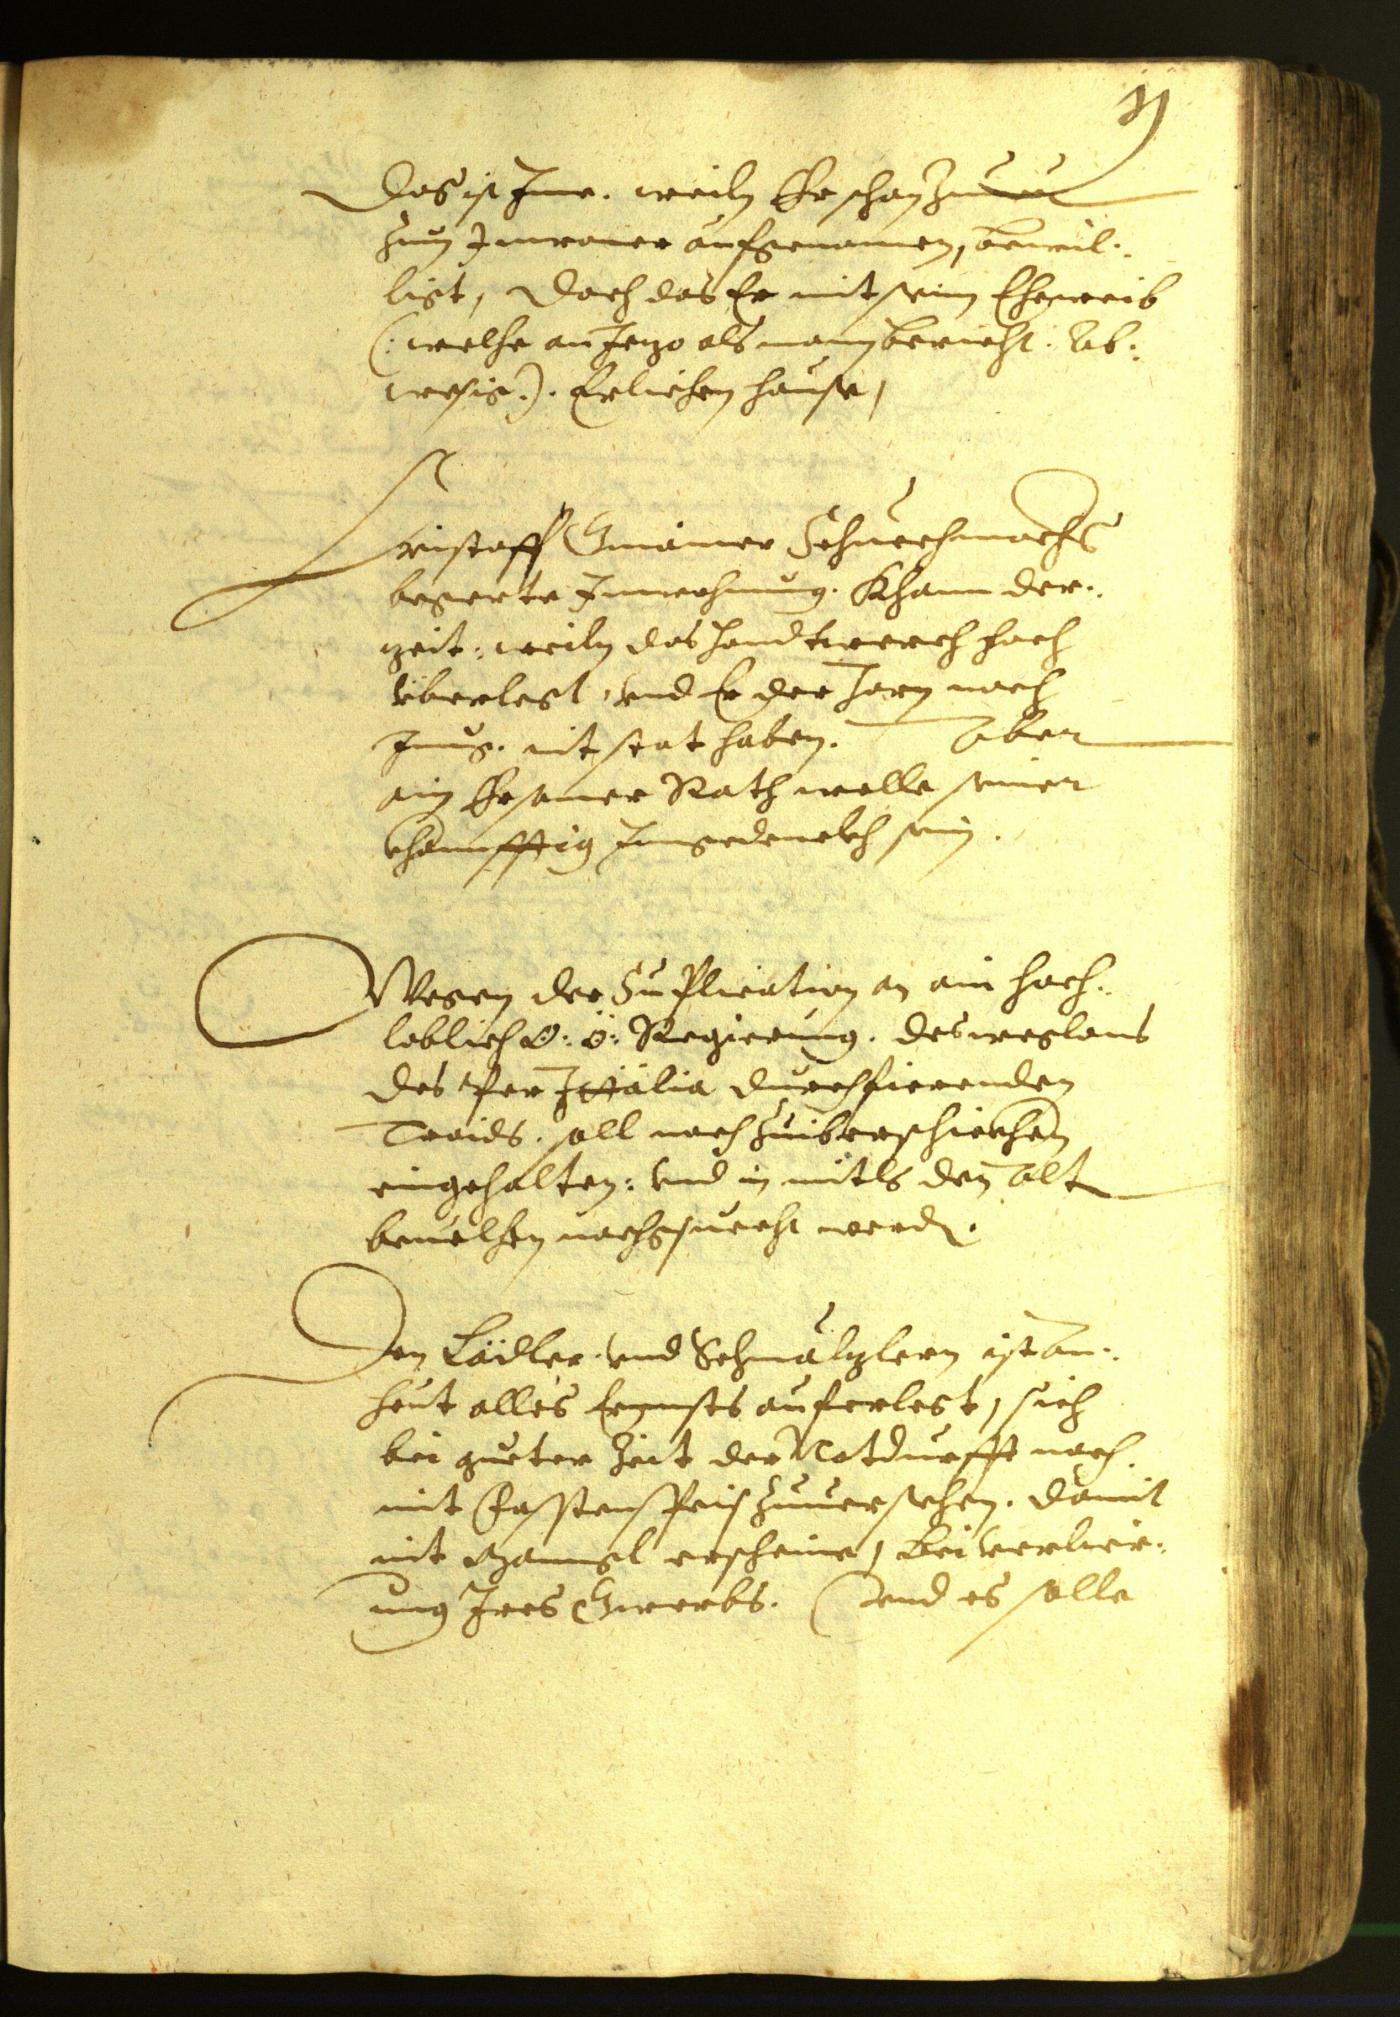 11
Das ist Ime. weiln Er schon Zuuor
zum Inwoner aufgenomen, bewil:
ligt, Doch das Er mit seim Eheweib
(: welche an Jezo als man bericht. Ab:
wesig:). Erlichen hause,
Cristoff Gmainer Schuechmachs
begerte Inwohnung. Khann der:
zeit: weiln das handtwerch hoch
überlegt. vnd Er der Jarn noch
Jung. nit stat haben. Aber
ain Ersamer Rath welle seiner
khonnfftig Ingedenckh sein.
Wegen der Suplication an ain hoch:
loblich O: Ö: Regierung. des weglans
des per Ittalia durchfierenden
Traids. soll noch Zuiberschickhen
eingehalten: vnd in mitls den Alt
beuelhen nachgsuecht werdn.
Den Lädler. vnd Schmälzlern ist an:
heut alles Ernnsts auferlegt, sich
bei gueter Zeit der Notdurfft nach.
mit Fasstenspeis Zuuersehen. damit
nit Manngl erscheine, Bei verlier:
ung Ires Gwerbs. Vnd es solle